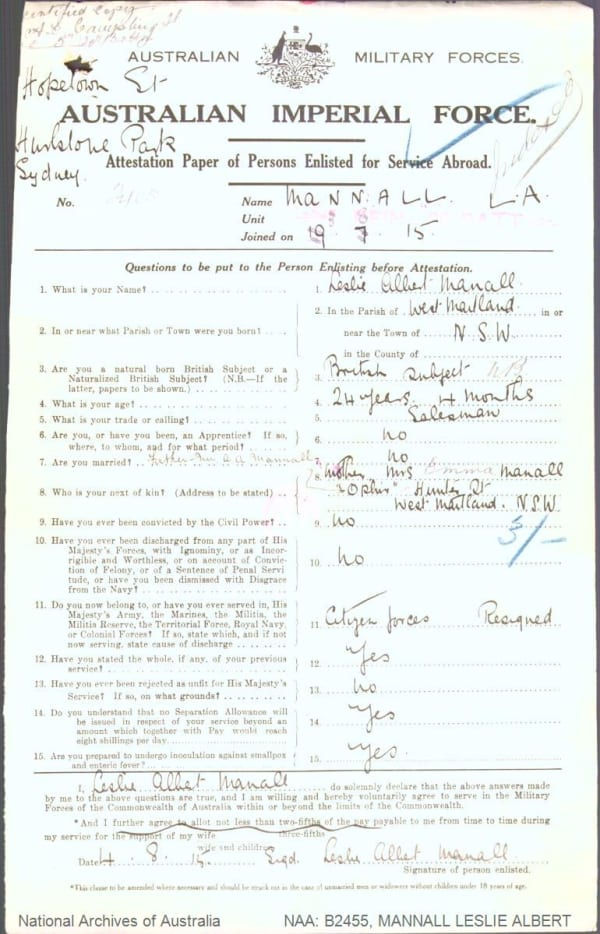 Certified Copy
AUSTRALIAN MILITARY FORCES.
Hopetown St
AUSTRALIAN IMPERIAL FORCE.
Hurlstone Park
Sydney.
Attestation Paper of Persons Enlisted for Service Abroad.
No.
Name MANNALL L.A.
Unit
Joined on 19 7 15
Questions to be put to the Person Enlisting before Attestation.
1. What is your Name? 1. Leslie Albert Manall
2. In or near what Parish or Town were you born? 2. In the Parish of West Maitland in or
near the Town of N S W
in the County of
3. Are you a natural born British Subject or a
Naturalized British Subject? (N.B.—If the
latter, papers to be shown.) 3. British Subject
4. What is your age? 4. 24 years 4 months
5. What is your trade or calling? 5. Salesman
6. Are you, or have you been, an Apprentice? If so,
where, to whom, and for what period? 6. no
7. Are you married? 7. no
Father Mannall
8. Who is your next of kin? (Address to be stated) 8. mother Mrs Emma Manall
"Ophir" Hunter St
West Maitland. N.S.W.
9. Have you ever been convicted by the Civil Power? 9. no
5/-
10. Have you ever been discharged from any part of His
Majesty's Forces, with Ignominy, or as Incor-
rigible and Worthless, or on account of Convic-
tion of Felony, or of a Sentence of Penal Servi
tude, or have you been dismissed with Disgrace
from the Navy? 10. no
11. Do you now belong to, or have you ever served in, His
Majesty's Army, the Marines, the Militia, the
Militia Reserve, the Territorial Force, Royal Navy,
or Colonial Forces? If so, state which, and if not
now serving, state cause of discharge 11. Citizen forces Resigned
12. Have you stated the whole, if any, of your previous
service? 12. Yes
13. Have you ever been rejected as unfit for His Majesty's
Service? If so, on what grounds? 13. no
14. Do you understand that no Separation Allowance will
be issued in respect of your service beyond an
amount which together with Pay would reach
eight shillings per day. 14. Yes
15. Are you prepared to undergo inoculation against smallpox
and enteric fever? 15. Yes.
I, Leslie Albet Manall do solemnly declare that the above answers made
by me to the above questions are true, and I am willing and hereby voluntarily agree to serve in the Military
Forces of the Commonwealth of Australia within or beyond the limits of the Commonwealth.
*And I further agree to allot not less than two-fifths of the pay payable to me from time to time during
three-fifths
my service for the support of my wife
wife and children
Date 4. 8. 15. Sigd. Leslie Albet Manall
Signature of person enlisted.
*This clause to be amended where necessary and should be struck out in the case of unmarried men or widowers without children under 18 years of age.
National Archives of Australia NAA: B2455, MANNALL LESLIE ALBERT